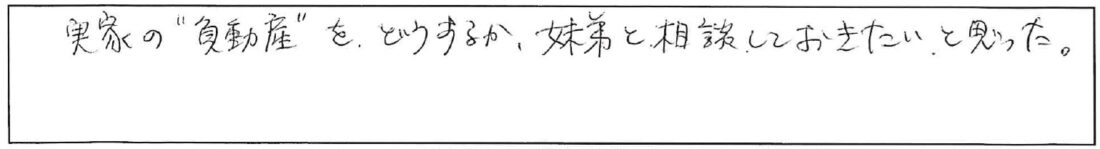 実家の“負動産”を、どうするか、妹弟と相談しておきたいと思った。